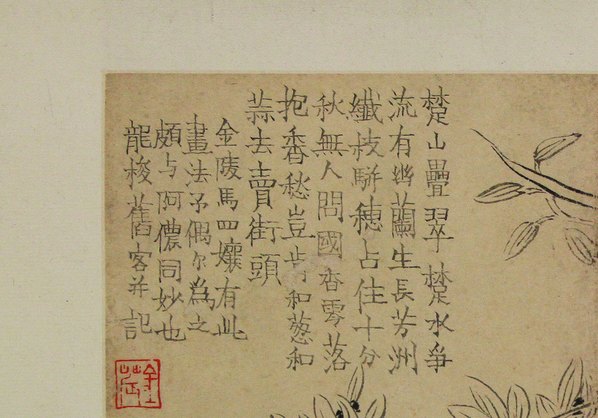 楚山疊翠楚水爭
流有幽蘭生長芳洲
纖枝駢穗占住十分
秋無人問國香零落
抱香愁豈肯和葱和
蒜去賣街頭
金陵馬四孃有此
畫法予偶尔為之
頗与阿儂同妙也
龍梭舊客并記